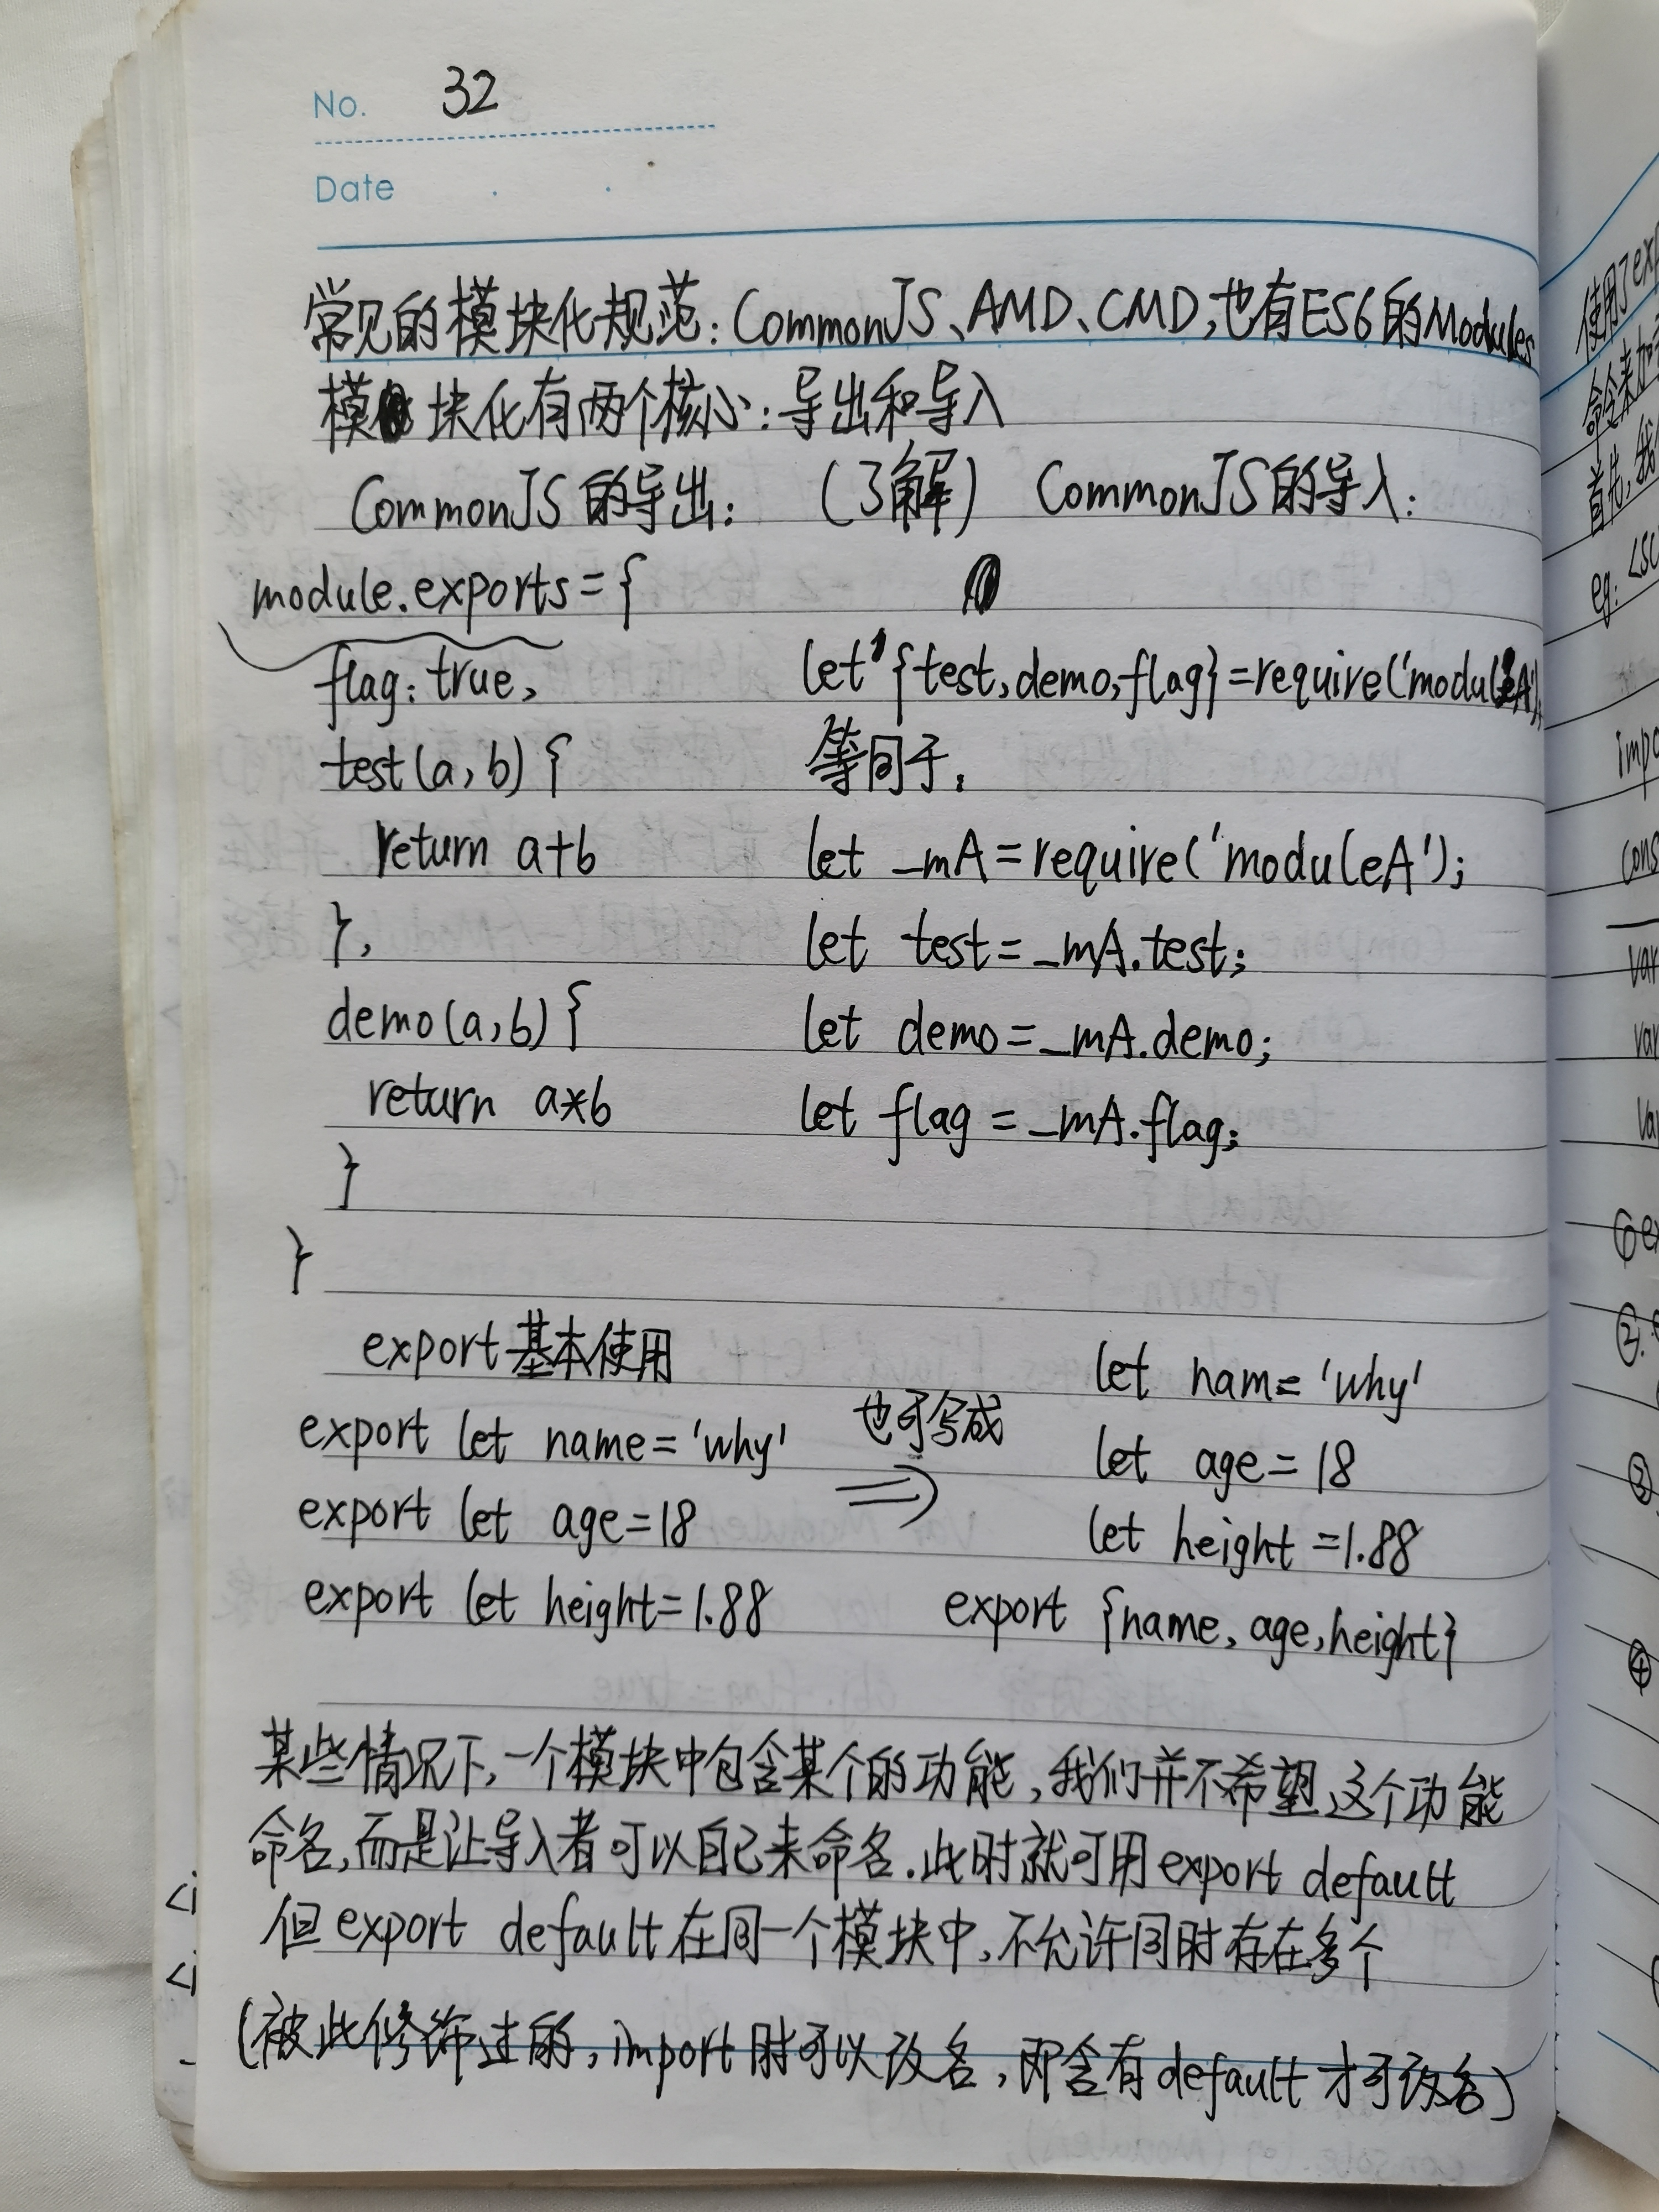 No. 32
Date
常见的模块化规范：CommonJS、AMD、CMD，也有ES6的Modules
模块化有两个核心：导出和导入
CommonJS的导出：（了解）
module.exports={
flag:true,
test(a,b){
return a+b
},
demo(a,b){
return a*b
}
}
CommonJS的导入：
let {test,demo,flag}=require('moduleA');
等同于：
let _mA=require('moduleA');
let test=_mA.test;
let demo=_mA.demo;
let flag=_mA.flag;
export基本使用
export let name='why'
export let age=18
export let height=1.88
也可写成
let nam='why'
let age=18
let height=1.88
export {name,age,height}
某些情况下，一个模块中包含某个的功能，我们并不希望这个功能
命名，而是让导入者可以自己来命名.此时就可用export default
但export default在同一个模块中，不允许同时存在多个
（被此修饰过的，import时可以改名，即含有default才可改名）
<i
<i
使用了exp
命令来加
首先，我
eg: <sc
impo
cons
var
var
va
①ex
②
③
④